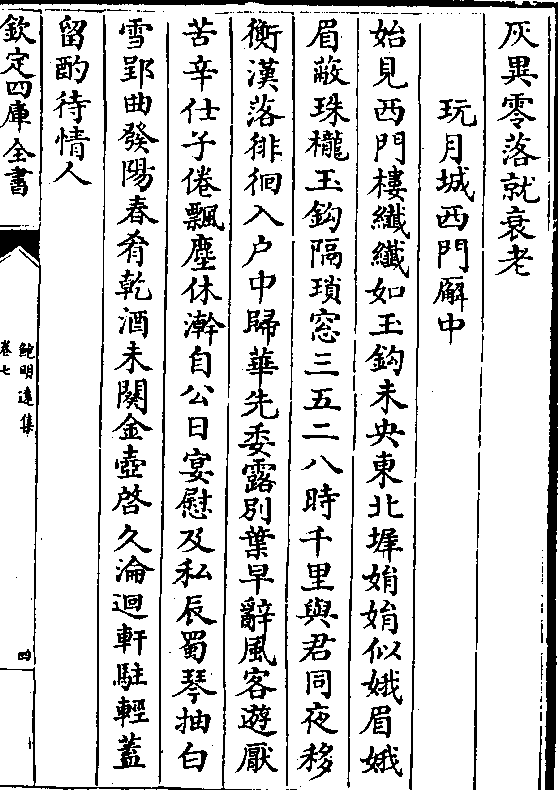 灰異零落就衰老
玩月城西門廨中
始見西門樓纎纎如玉鈎未央東北墀娟娟似娥眉娥
眉蔽珠櫳玉鈎隔瑣窓三五二八時千里與君同夜移
衡漢落徘徊入户中歸華先委露别葉早辭風客遊厭
苦辛仕子倦飄塵休澣自公日宴慰及私辰蜀琴抽白
雪郢曲發陽春肴乾酒未闋金壺啓久淪迴軒駐輕蓋
留酌待情人
欽定四庫全書
鮑明遠集
卷七
四